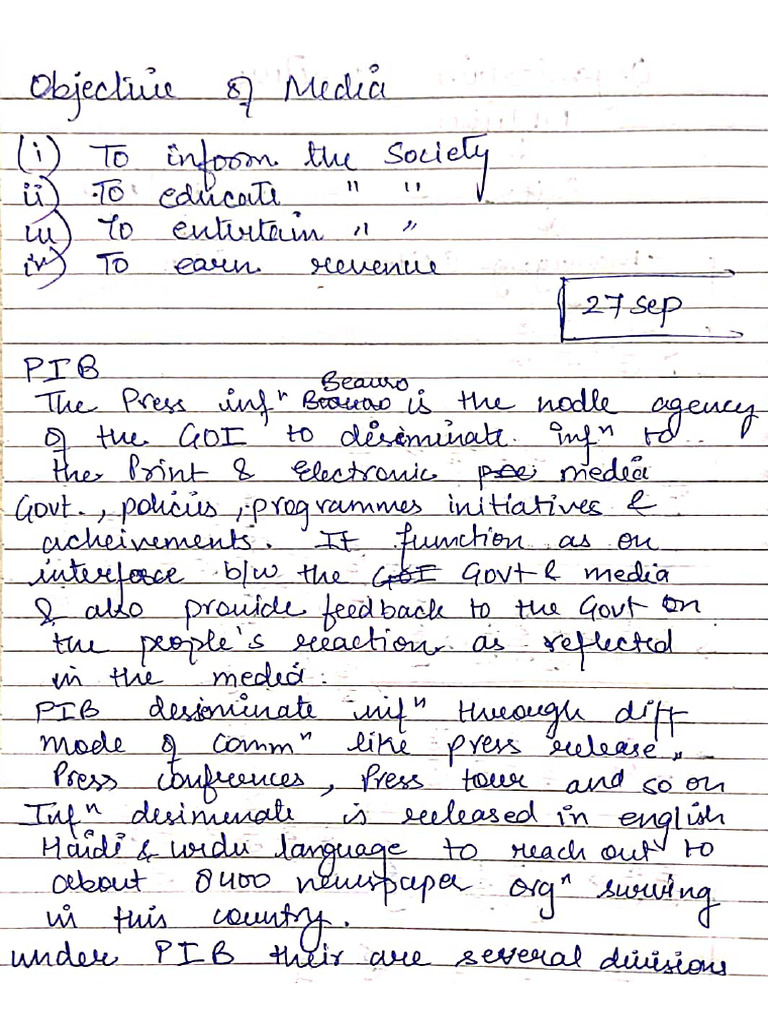 Objective of Media
(i) To inform the Society
ii) To educate " "
iii) To entertain " "
iv) To earn revenue
27 sep
PIB
The Press infⁿ Beauro is the nodle agency
of the GOI to diseminate infⁿ to
the Print & Electronic media
Govt., policies, programmes initiatives &
acheivements. It function as an
interface b/w the GOI Govt & media
& also provide feedback to the Govt on
the people's reaction as reflected
in the media.
PIB desiminate infⁿ through diff
mode of commⁿ like press release,
Press conferences, Press tour and so on
Infⁿ desimenate is released in english
Haidi & urdu language to reach out to
about 8400 newspaper orgⁿ surving
in this country.
under PIB their are several divisions